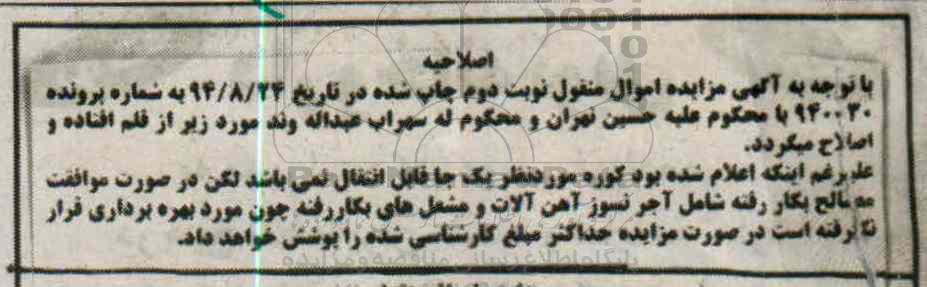 اصلاحیه
با توجه به آگهی مزایده اموال منقول نوبت دوم چاپ شده در تاریخ ۹۴/۸/۲۴ به شماره پرونده
۹۴۰۰۳۰ با محکوم علیه حسین تهران و محکوم له سهراب عبداله وند مورد زیر از قلم افتاده و
اصلاح میگردد.
علیرغم اینکه اعلام شده بود کوره موردنظر یک جا قابل انتقال نمی باشد لکن در صورت موافقت
مصالح بکار رفته شامل آجر نسوز آهن آلات و مشعل های بکاررفته چون مورد بهره برداری قرار
نگرفته است در صورت مزایده حداکثر مبلغ کارشناسی شده را پوشش خواهد داد.
پایگاه اطلاع رسانی مناقصه و مزایده